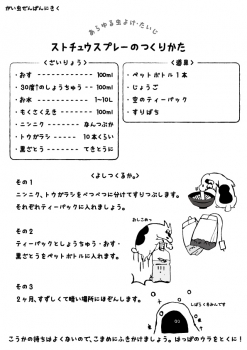 がい虫ぜんぱんにきく
あらゆる虫よけ・たいじ
ストチュウスプレーのつくりかた
<ざいりょう>
・おす ------------ 100ml
・30度↑のしょうちゅう -- 100ml
・お水 ---------- 1〜10L
・もくさくえき ------- 100ml
・ニンニク -------- なんつぶか
・トウガラシ ------ 10本くらい
・黒ざとう -------- てきとうに
<道具>
・ペットボトル1本
・じょうご
・空のティーパック
・すりばち
<よしつくるか。>
その1
ニンニク、トウガラシをべつべつに分けてすりつぶします。
それぞれティーパックに入れましょう。
その2
ティーパックとしょうちゅう・おす・
黒ざとうをペットボトルに入れます。
おしこめっ
その3
2ヶ月、すずしくて暗い場所にほぞんします。
しばらくをみんです
こうかの持ちはよくないので、こまめにふきかけましょう。はっぱのウラをとくに!